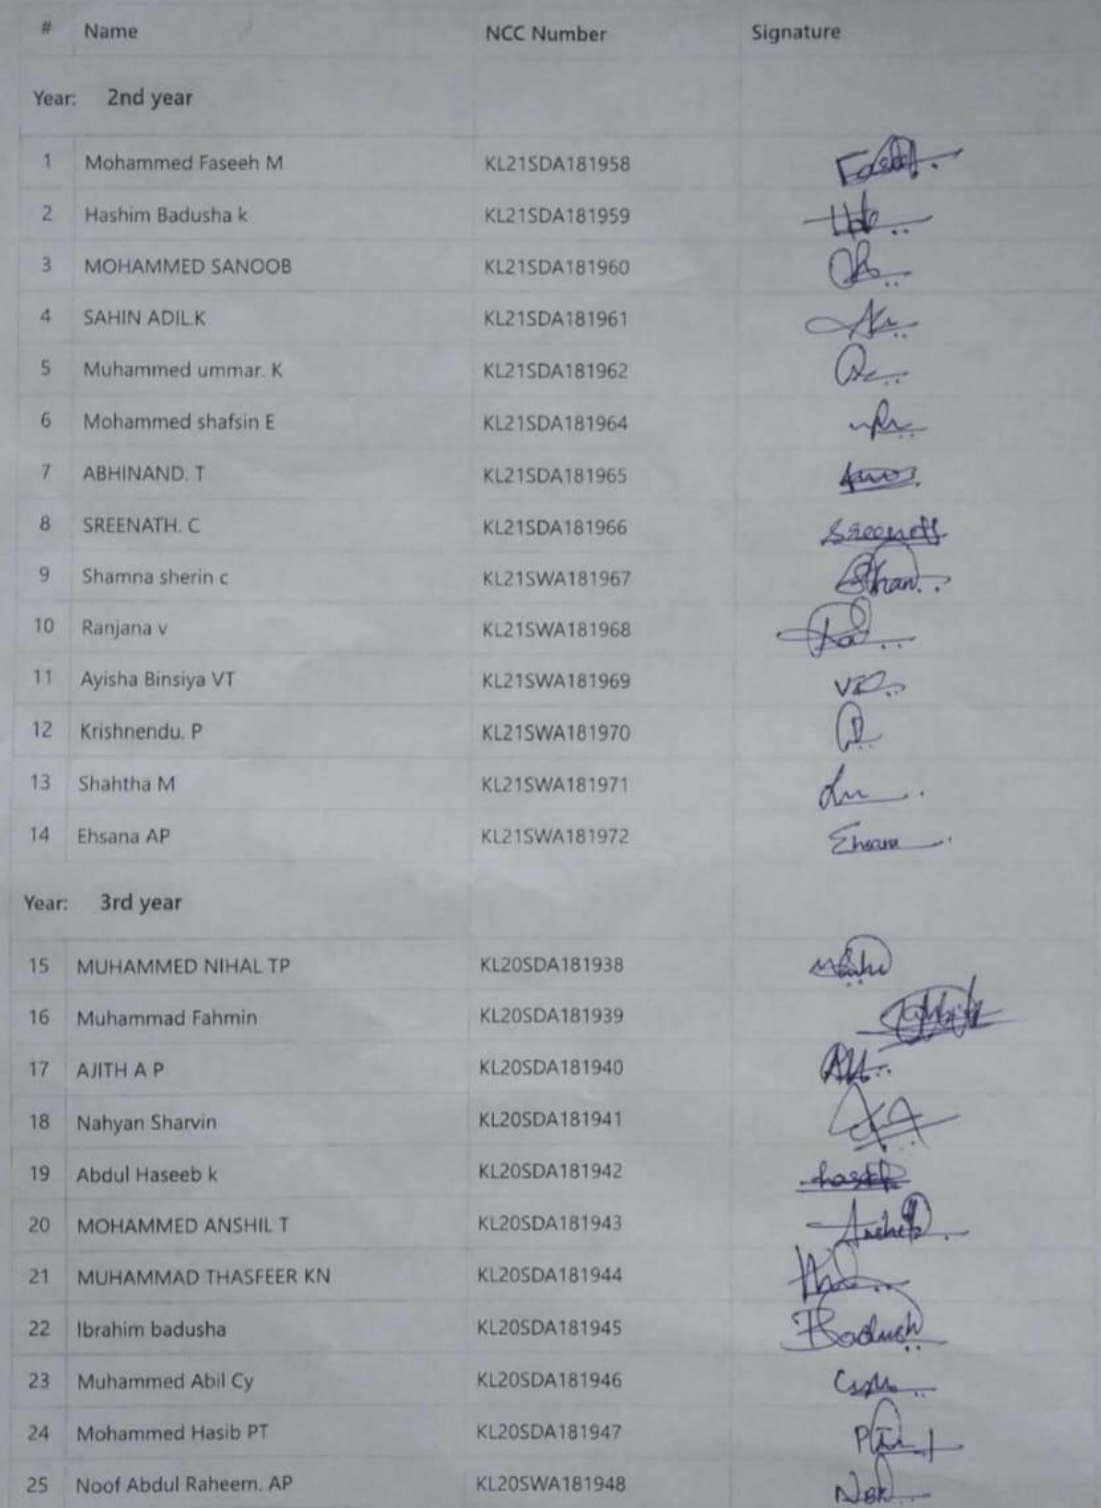 # Name NCC Number Signature
Year: 2nd year
1 Mohammed Faseeh M KL21SDA181958
2 Hashim Badusha k KL21SDA181959
3 MOHAMMED SANOOB KL21SDA181960
4 SAHIN ADIL.K KL21SDA181961
5 Muhammed ummar. K KL21SDA181962
6 Mohammed shafsin E KL21SDA181964
7 ABHINAND. T KL21SDA181965
8 SREENATH. C KL21SDA181966
9 Shamna sherin c KL21SWA181967
10 Ranjana v KL21SWA181968
11 Ayisha Binsiya VT KL21SWA181969
12 Krishnendu. P KL21SWA181970
13 Shahtha M KL21SWA181971
14 Ehsana AP KL21SWA181972 Ehsana
Year: 3rd year
15 MUHAMMED NIHAL TP KL20SDA181938
16 Muhammad Fahmin KL20SDA181939
17 AJITH A P KL20SDA181940
18 Nahyan Sharvin KL20SDA181941
19 Abdul Haseeb k KL20SDA181942
20 MOHAMMED ANSHIL T KL20SDA181943
21 MUHAMMAD THASFEER KN KL20SDA181944
22 Ibrahim badusha KL20SDA181945
23 Muhammed Abil Cy KL20SDA181946
24 Mohammed Hasib PT KL20SDA181947
25 Noof Abdul Raheem. AP KL20SWA181948